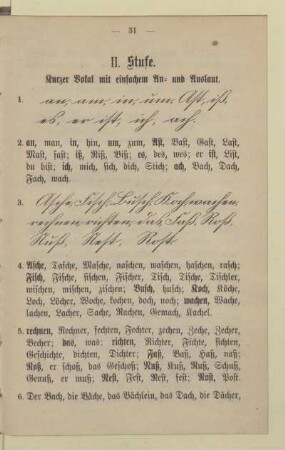 — 31 —
II. Stufe.
Kurzer Vokal mit einfachem An- und Auslaut.
1. an, am, in, um, Ast, iß,
es, er ist, ich, ach.
2. an, man, in, hin, um, zum, Ast, Bast, Gast, Last,
Mast, fast; iß, Riß, Biß; es, des, wes; er ist, List,
du bist, ich, mich, sich, dich, Stich; ach, Bach, Dach,
Fach, wach.
3. Asche, Fisch, Busch, Koch, wachen,
rechnen, richten, das, Faß, Roß,
Nuß, Nest, Rost.
4. Asche, Tasche, Masche, naschen, waschen, haschen, rasch;
Fisch, Fische, fischen, Fischer, Tisch, Tische, Tischler,
wischen, mischen, zischen; Busch, husch, Koch, Köche,
Loch, Löcher, Woche, kochen, doch, noch; wachen, Wache,
lachen, Lacher, Sache, Rachen, Gemach, Kachel.
5. rechnen, Rechner, fechten, Fechter, zechen, Zeche, Zecher,
Becher; das, was: richten, Richter, Fichte, sichten,
Geschichte, dichten, Dichter; Faß, Baß, Haß, naß;
Roß, er schoß, das Geschoß; Nuß, Kuß, Ruß, Schuß,
Genuß, er muß; Nest, Fest, Rest, fest; Rost, Post.
6. Der Bach, die Bäche, das Bächlein, das Dach, die Dächer,